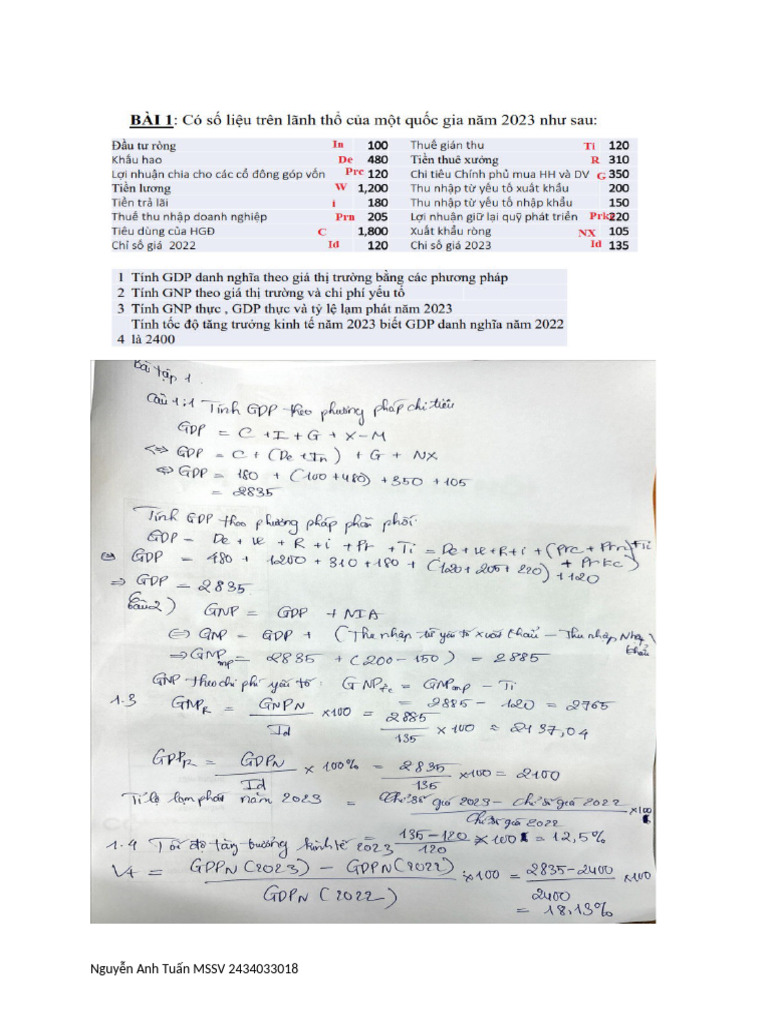 BÀI 1: Có số liệu trên lãnh thổ của một quốc gia năm 2023 như sau:
Đầu tư ròng In 100 Thuế gián thu Ti 120
Khấu hao De 480 Tiền thuê xưởng R 310
Lợi nhuận chia cho các cổ đông góp vốn Prc 120 Chi tiêu Chính phủ mua HH và DV G 350
Tiền lương W 1,200 Thu nhập từ yếu tố xuất khẩu 200
Tiền trả lãi i 180 Thu nhập từ yếu tố nhập khẩu 150
Thuế thu nhập doanh nghiệp Prn 205 Lợi nhuận giữ lại quỹ phát triển Prkc 220
Tiêu dùng của HGĐ C 1,800 Xuất khẩu ròng NX 105
Chỉ số giá 2022 Id 120 Chỉ số giá 2023 Id 135
1 Tính GDP danh nghĩa theo giá thị trường bằng các phương pháp
2 Tính GNP theo giá thị trường và chi phí yếu tố
3 Tính GNP thực , GDP thực và tỷ lệ lạm phát năm 2023
Tính tốc độ tăng trưởng kinh tế năm 2023 biết GDP danh nghĩa năm 2022
4 là 2400
Bài tập 1.
Câu 1: 1 Tính GDP theo phương pháp chi tiêu
GDP = C + I + G + X - M
<=> GDP = C + (De + In) + G + NX
<=> GDP = 180 + (100 + 480) + 350 + 105
= 2835
Tính GDP theo phương pháp phân phối.
GDP = De + W + R + i + Pr + Ti = De + W + R + i + (Prc + Prn + Prkc) + Ti
<=> GDP = 480 + 1200 + 310 + 180 + (120 + 205 + 220) + 120
=> GDP = 2835
Câu 2) GNP = GDP + NIA
<=> GNP = GDP + (Thu nhập từ yếu tố xuất khẩu - Thu nhập Nhập khẩu)
=> GNPmp = 2835 + (200 - 150) = 2885
GNP theo chi phí yếu tố: GNPfc = GNPmp - Ti
= 2885 - 120 = 2765
1.3 GNPR = GNPN / Id x100 = 2885 / 135 x 100 = 2137,04
GDPR = GDPN / Id x 100% = 2835 / 135 x100 = 2100
Tỉ lệ lạm phát năm 2023 = Chỉ số giá 2023 - Chỉ số giá 2022 / Chỉ số giá 2022 x100
= 135 - 120 / 120 x 100% = 12,5%
1.4 Tốc độ tăng trưởng kinh tế 2023
V4 = GDPN (2023) - GDPN (2022) / GDPN (2022) x100 = 2835 - 2400 / 2400 x100
= 18,13%
Nguyễn Anh Tuấn MSSV 2434033018